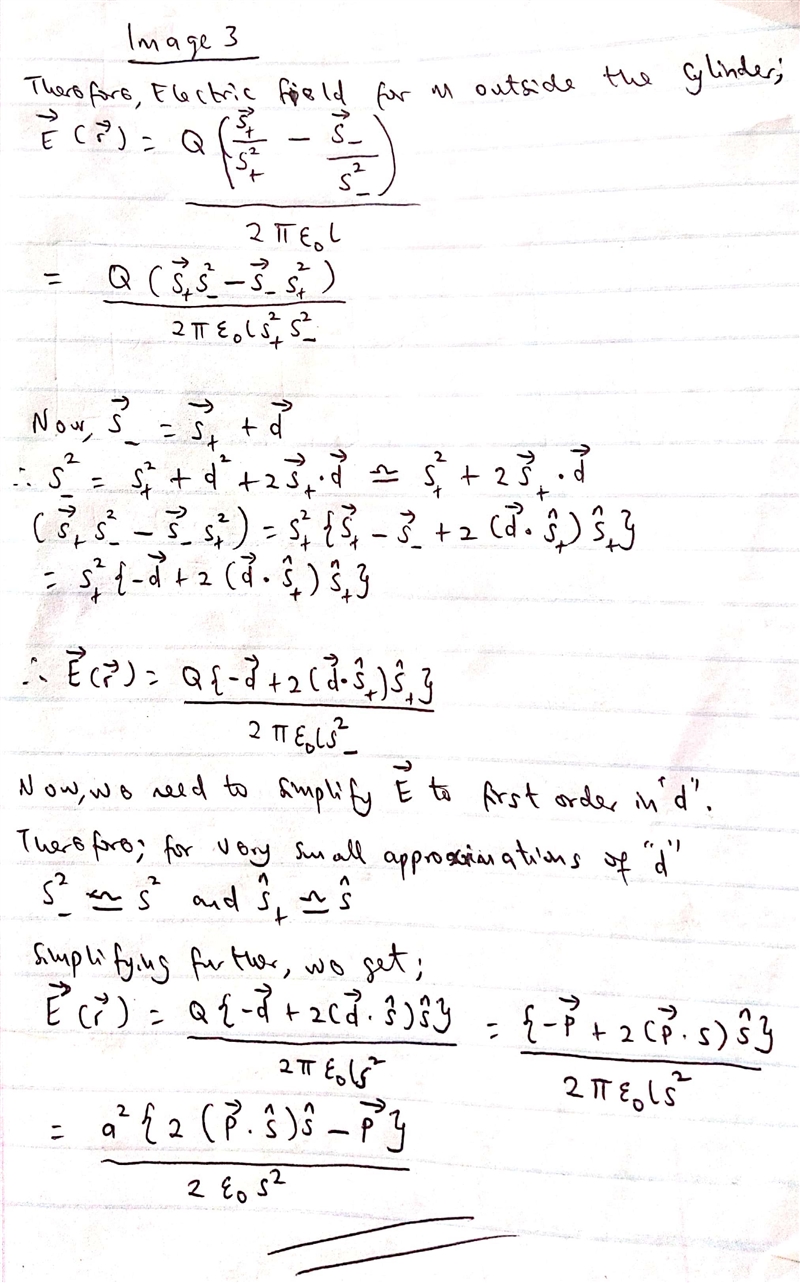 Image 3
Therefore, Electric field for r outside the cylinder;
E⃗ (r⃗) = Q (s⃗₊/s₊² − s⃗₋/s₋²) / 2πε₀l
= Q (s⃗₊s₋² − s⃗₋s₊²) / 2πε₀l s₊² s₋²
Now, s⃗₋ = s⃗₊ + d⃗
∴ s₋² = s₊² + d² + 2s⃗₊·d⃗ ≃ s₊² + 2s⃗₊·d⃗
(s⃗₊s₋² − s⃗₋s₊²) = s₊² {s⃗₊ − s⃗₋ + 2(d⃗·ŝ₊)ŝ₊}
= s₊² {−d⃗ + 2(d⃗·ŝ₊)ŝ₊}
∴ E⃗(r⃗) = Q{−d⃗ + 2(d⃗·ŝ₊)ŝ₊} / 2πε₀l s₋²
Now, we need to simplify E⃗ to first order in "d".
Therefore; for very small approximations of "d"
s₋² ≃ s² and ŝ₊ ≃ ŝ
Simplifying further, we get;
E⃗(r⃗) = Q{−d⃗ + 2(d⃗·ŝ)ŝ} / 2πε₀l s² = {−p⃗ + 2(p⃗·s)ŝ} / 2πε₀l s²
= a² {2(P⃗·ŝ)ŝ − P⃗} / 2ε₀s²